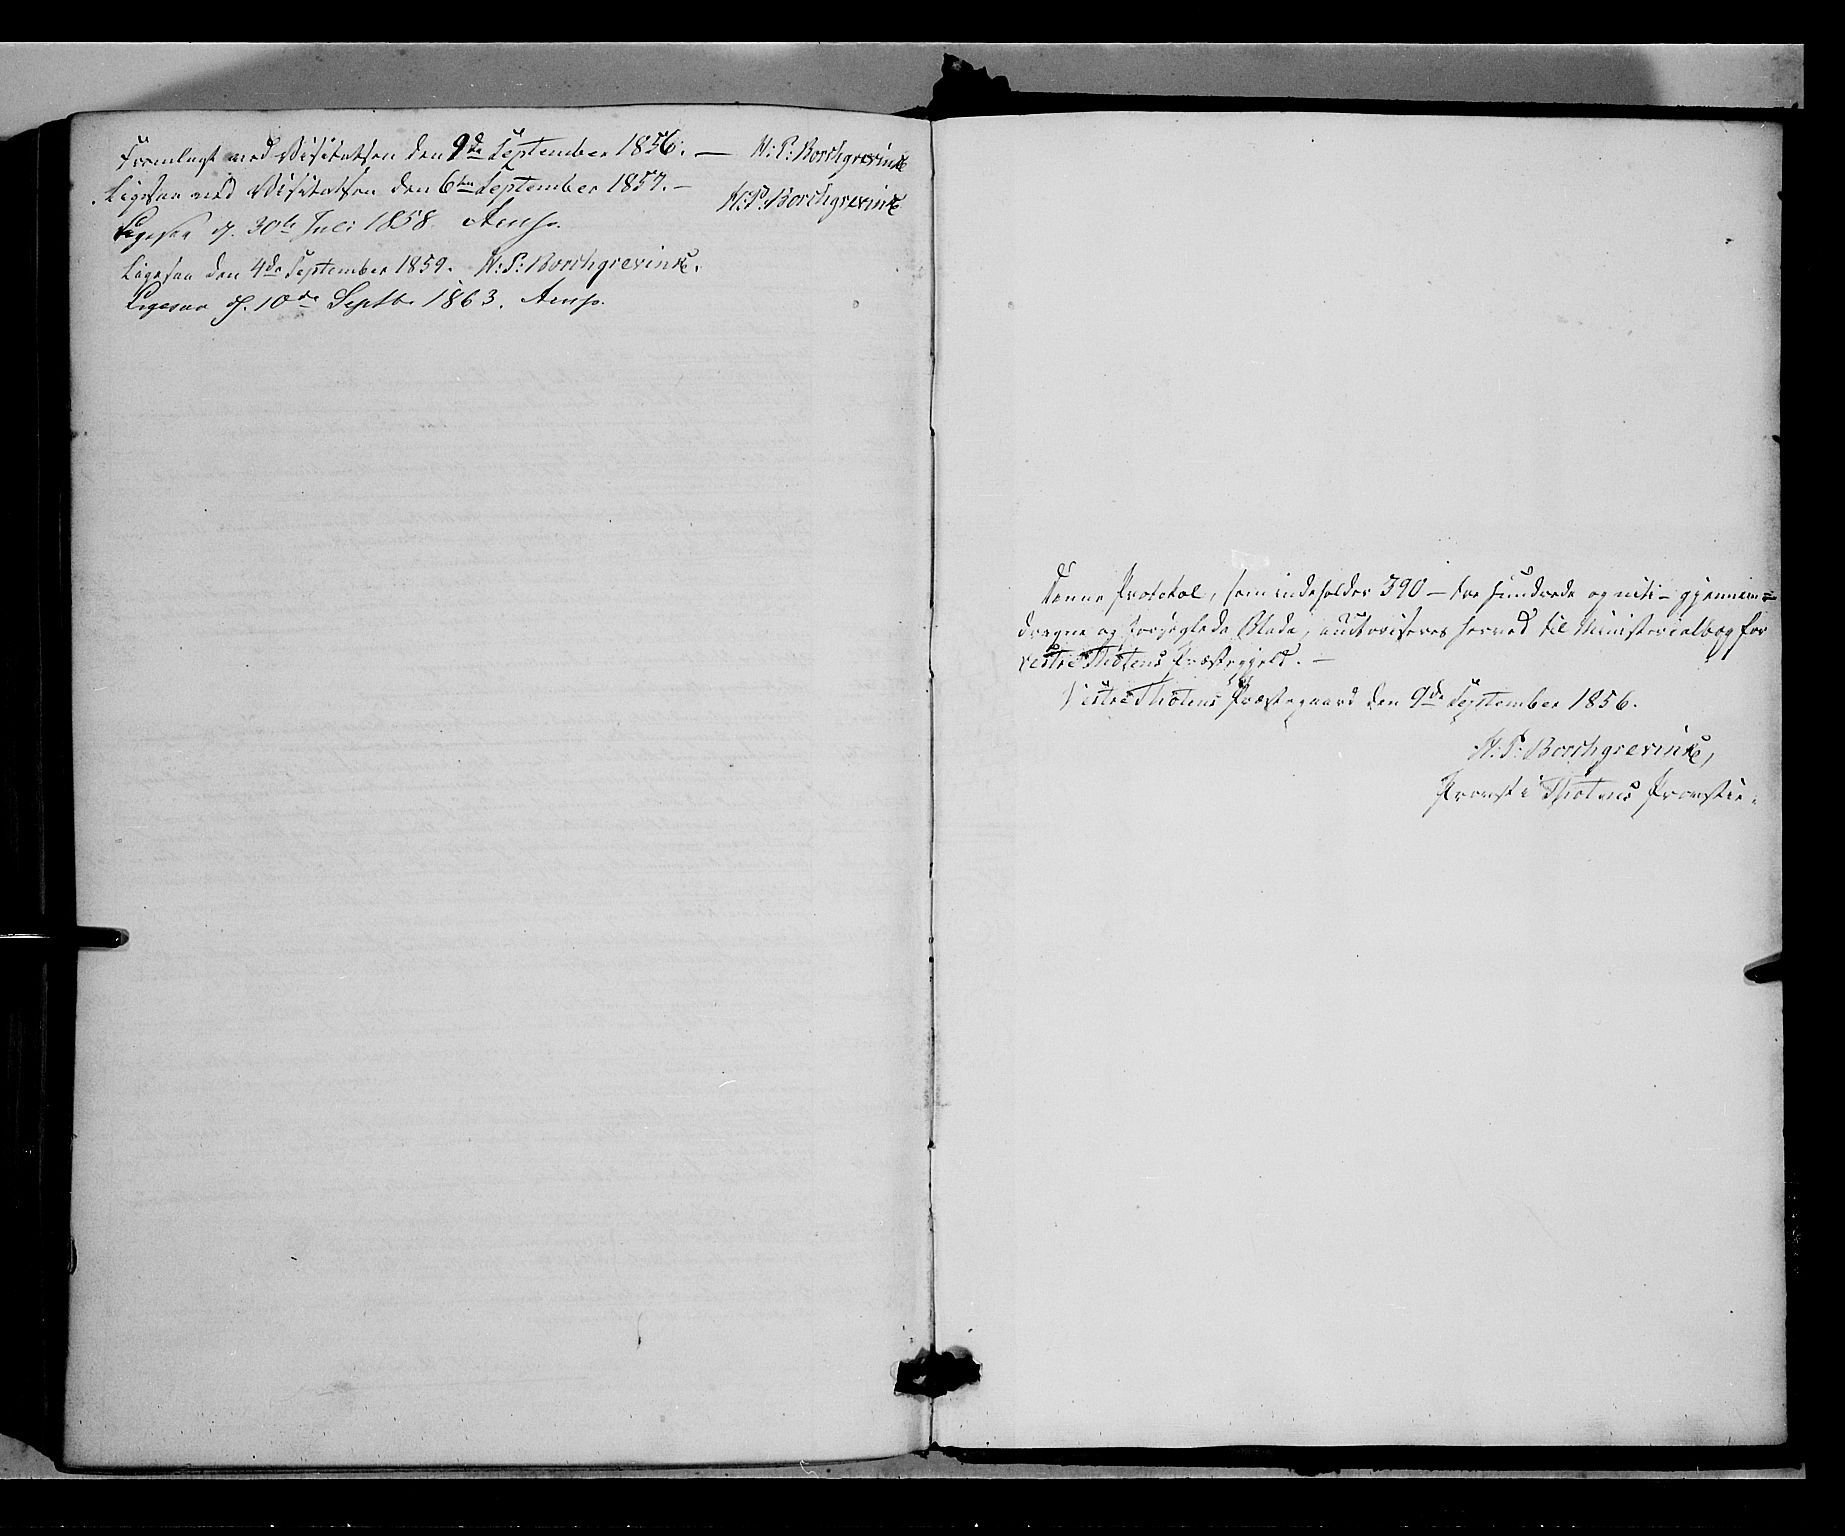 Fremlagt ved Visitatsen den 9de September 1856. — H: P: Borchgrevink
Ligesaa ved Visitatsen den 6te September 1857. — H: P: Borchgrevink
Ligesaa d. 30te Juli 1858. Arup.
Ligesaa den 4de September 1859. H: P: Borchgrevink.
Ligesaa d. 10de Septbr 1863. Arup.
Denne Protokol, som indeholder 390 — tre hundrede og niti — gjennem=
dragne og forseglede Blade, autoriseres herved til Ministerialbog for
Vestre Thotens Præstegjeld. —
Vestre Thotens Præstegaard den 9de September 1856.
H: P: Borchgrevink,
Provst i Thotens Provstie.